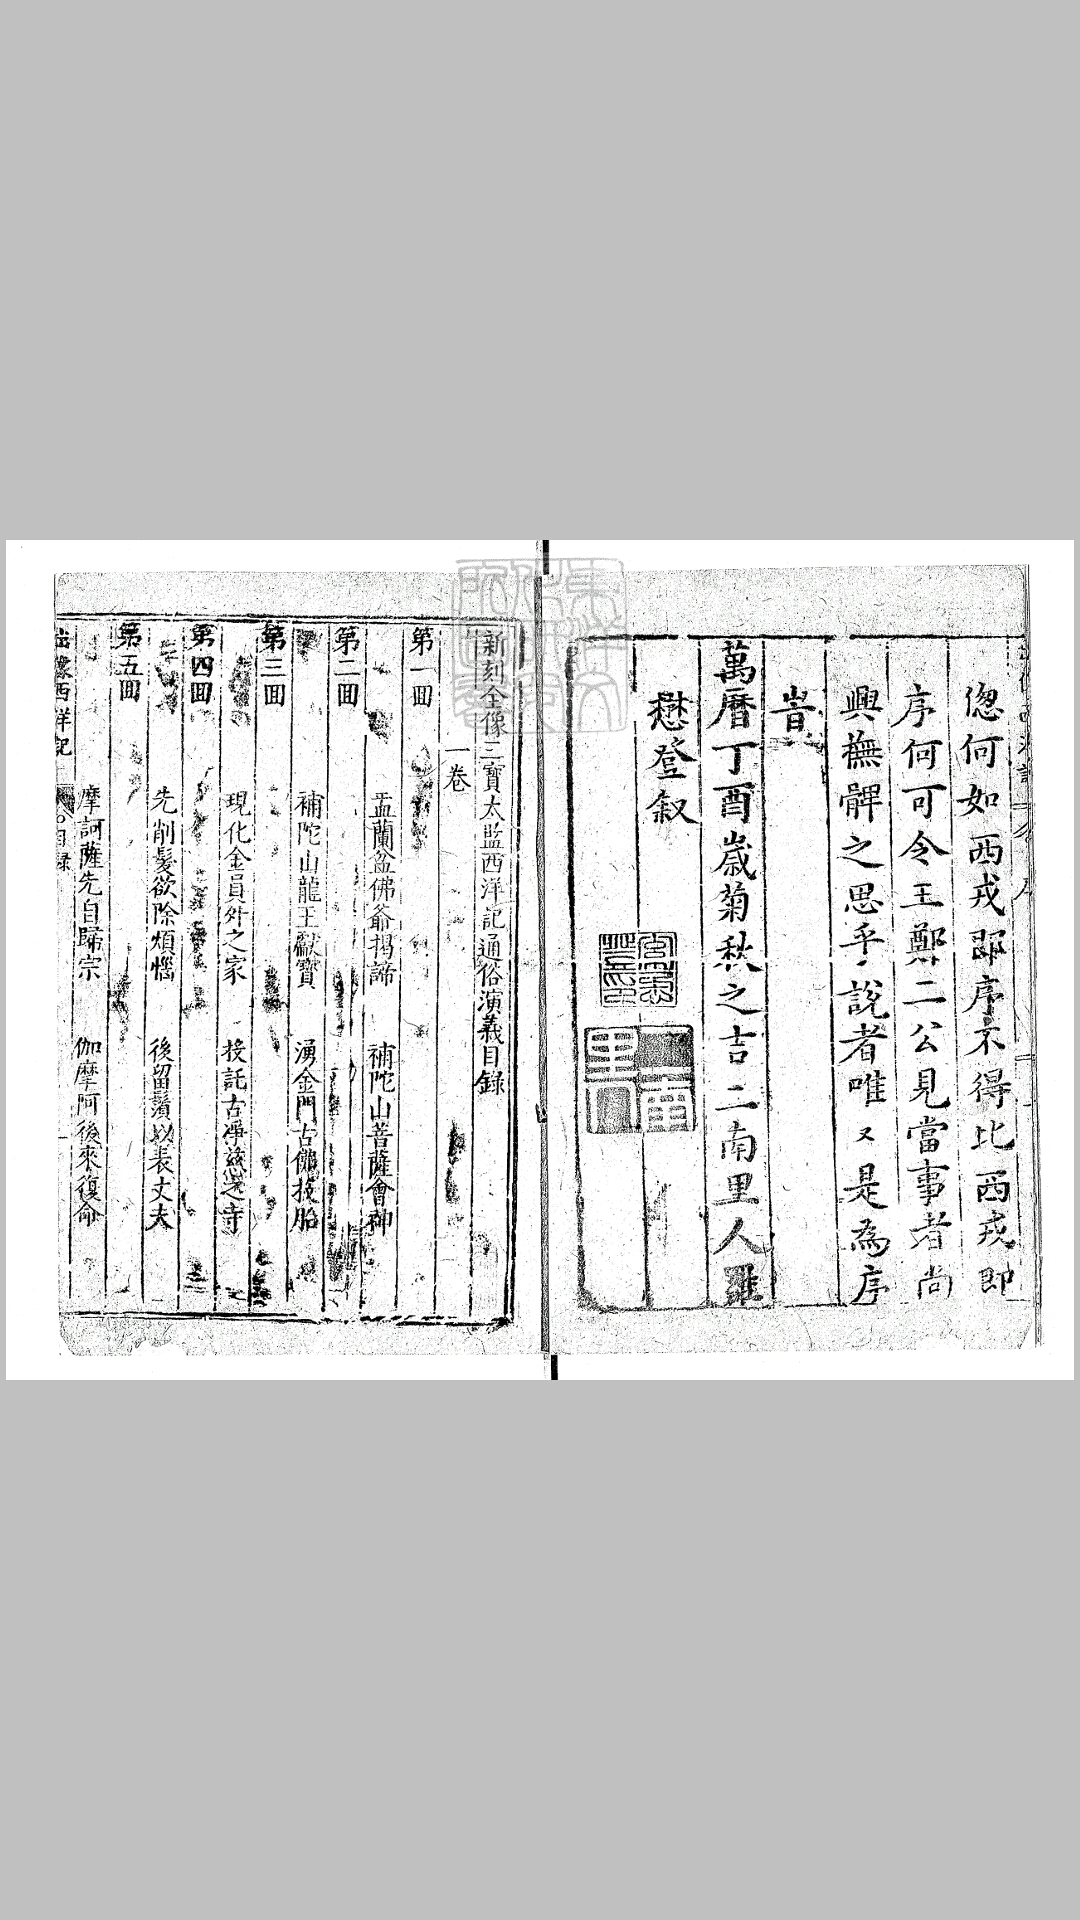 偬何如西戎即序不得比西戎即
序何可令王鄭二公見當事者尚
興撫髀之思乎說者唯又是為序
旹
萬曆丁酉歲菊秋之吉二南里人羅
懋登叙
新刻全像三寶太監西洋記通俗演義目錄
一卷
第一囬
盂蘭盆佛爺揭諦 補陀山菩薩會神
第二囬
補陀山龍王獻寶 湧金門古佛投胎
第三囬
現化金員外之家 投託古淨慈之寺
第四囬
先削髮欲除煩惱 後留鬚以表丈夫
第五囬
摩訶薩先自歸宗 伽摩阿後來復命
像西洋記 目錄